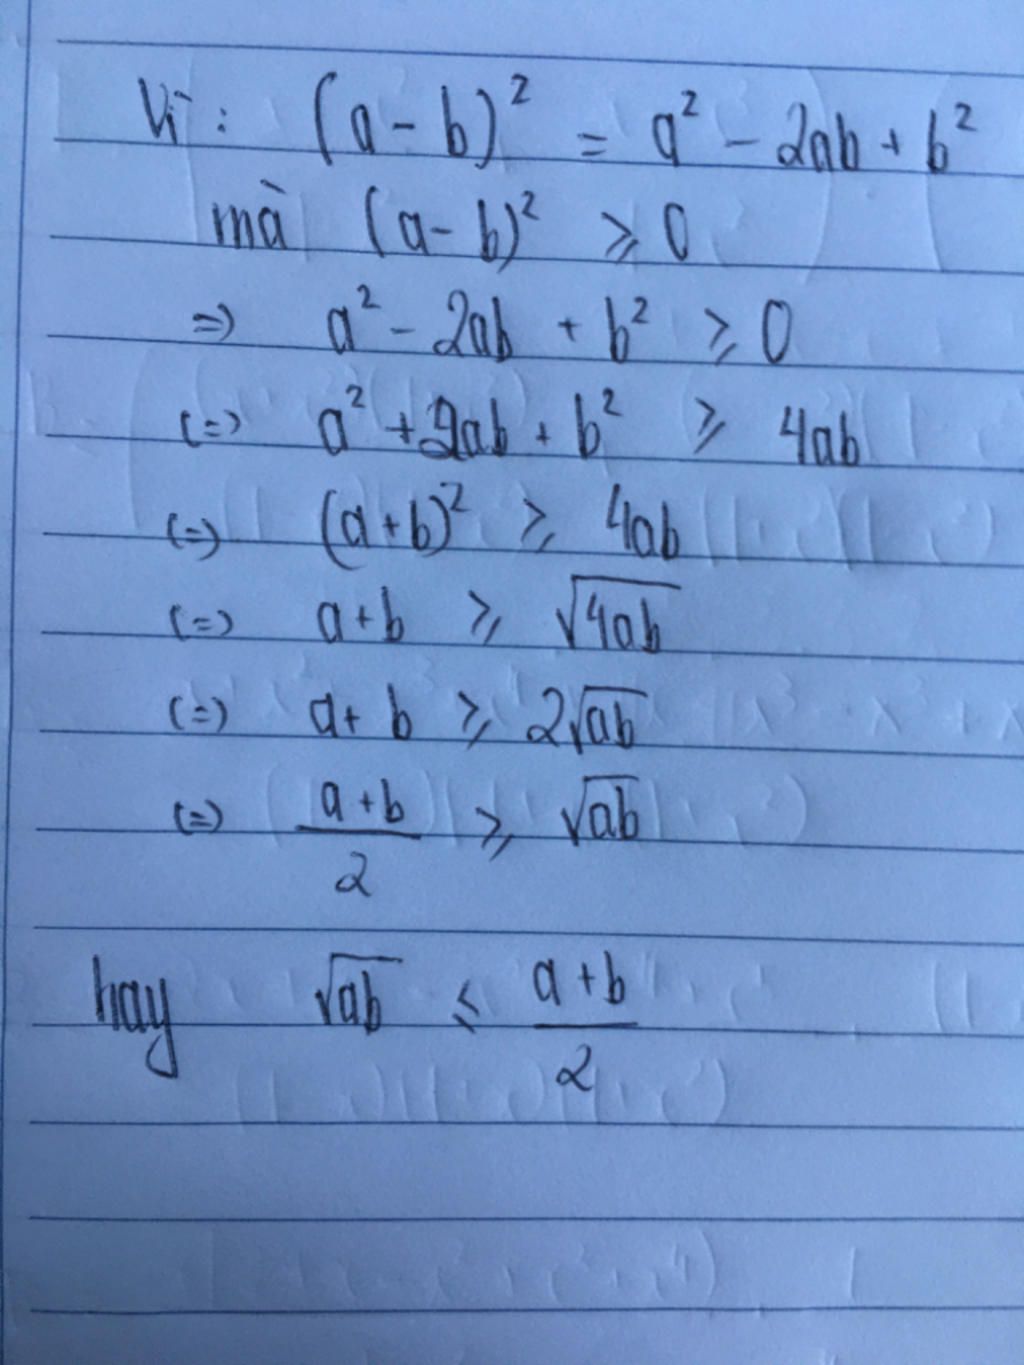 Vì : (a - b)² = a² - 2ab + b²
mà (a - b)² ⩾ 0
=> a² - 2ab + b² ⩾ 0
(=) a² + 2ab + b² ⩾ 4ab
(=) (a + b)² ⩾ 4ab
(=) a + b ⩾ √4ab
(=) a + b ⩾ 2√ab
(=) a + b / 2 ⩾ √ab
hay √ab ⩽ a + b / 2